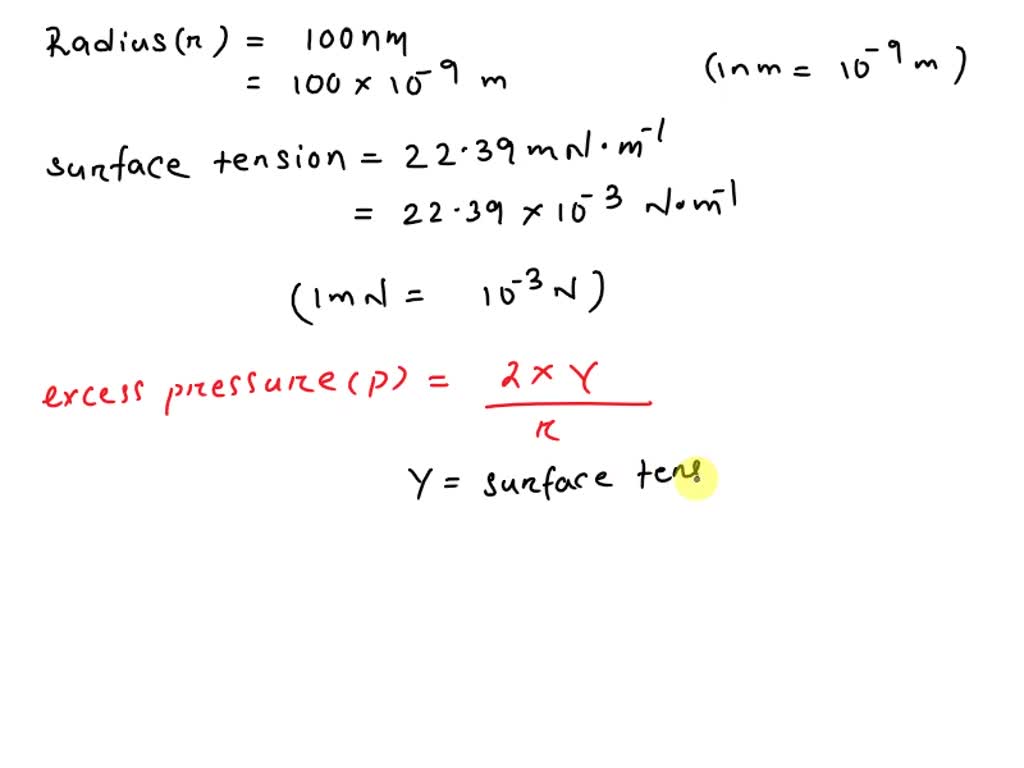 Radius(r) = 100nm
= 100 × 10⁻⁹ m
(1nm = 10⁻⁹ m)
surface tension = 22.39 mN·m⁻¹
= 22.39 × 10⁻³ N·m⁻¹
(1mN = 10⁻³ N)
excess pressure(p) = 2 × γ
r
γ = surface tens